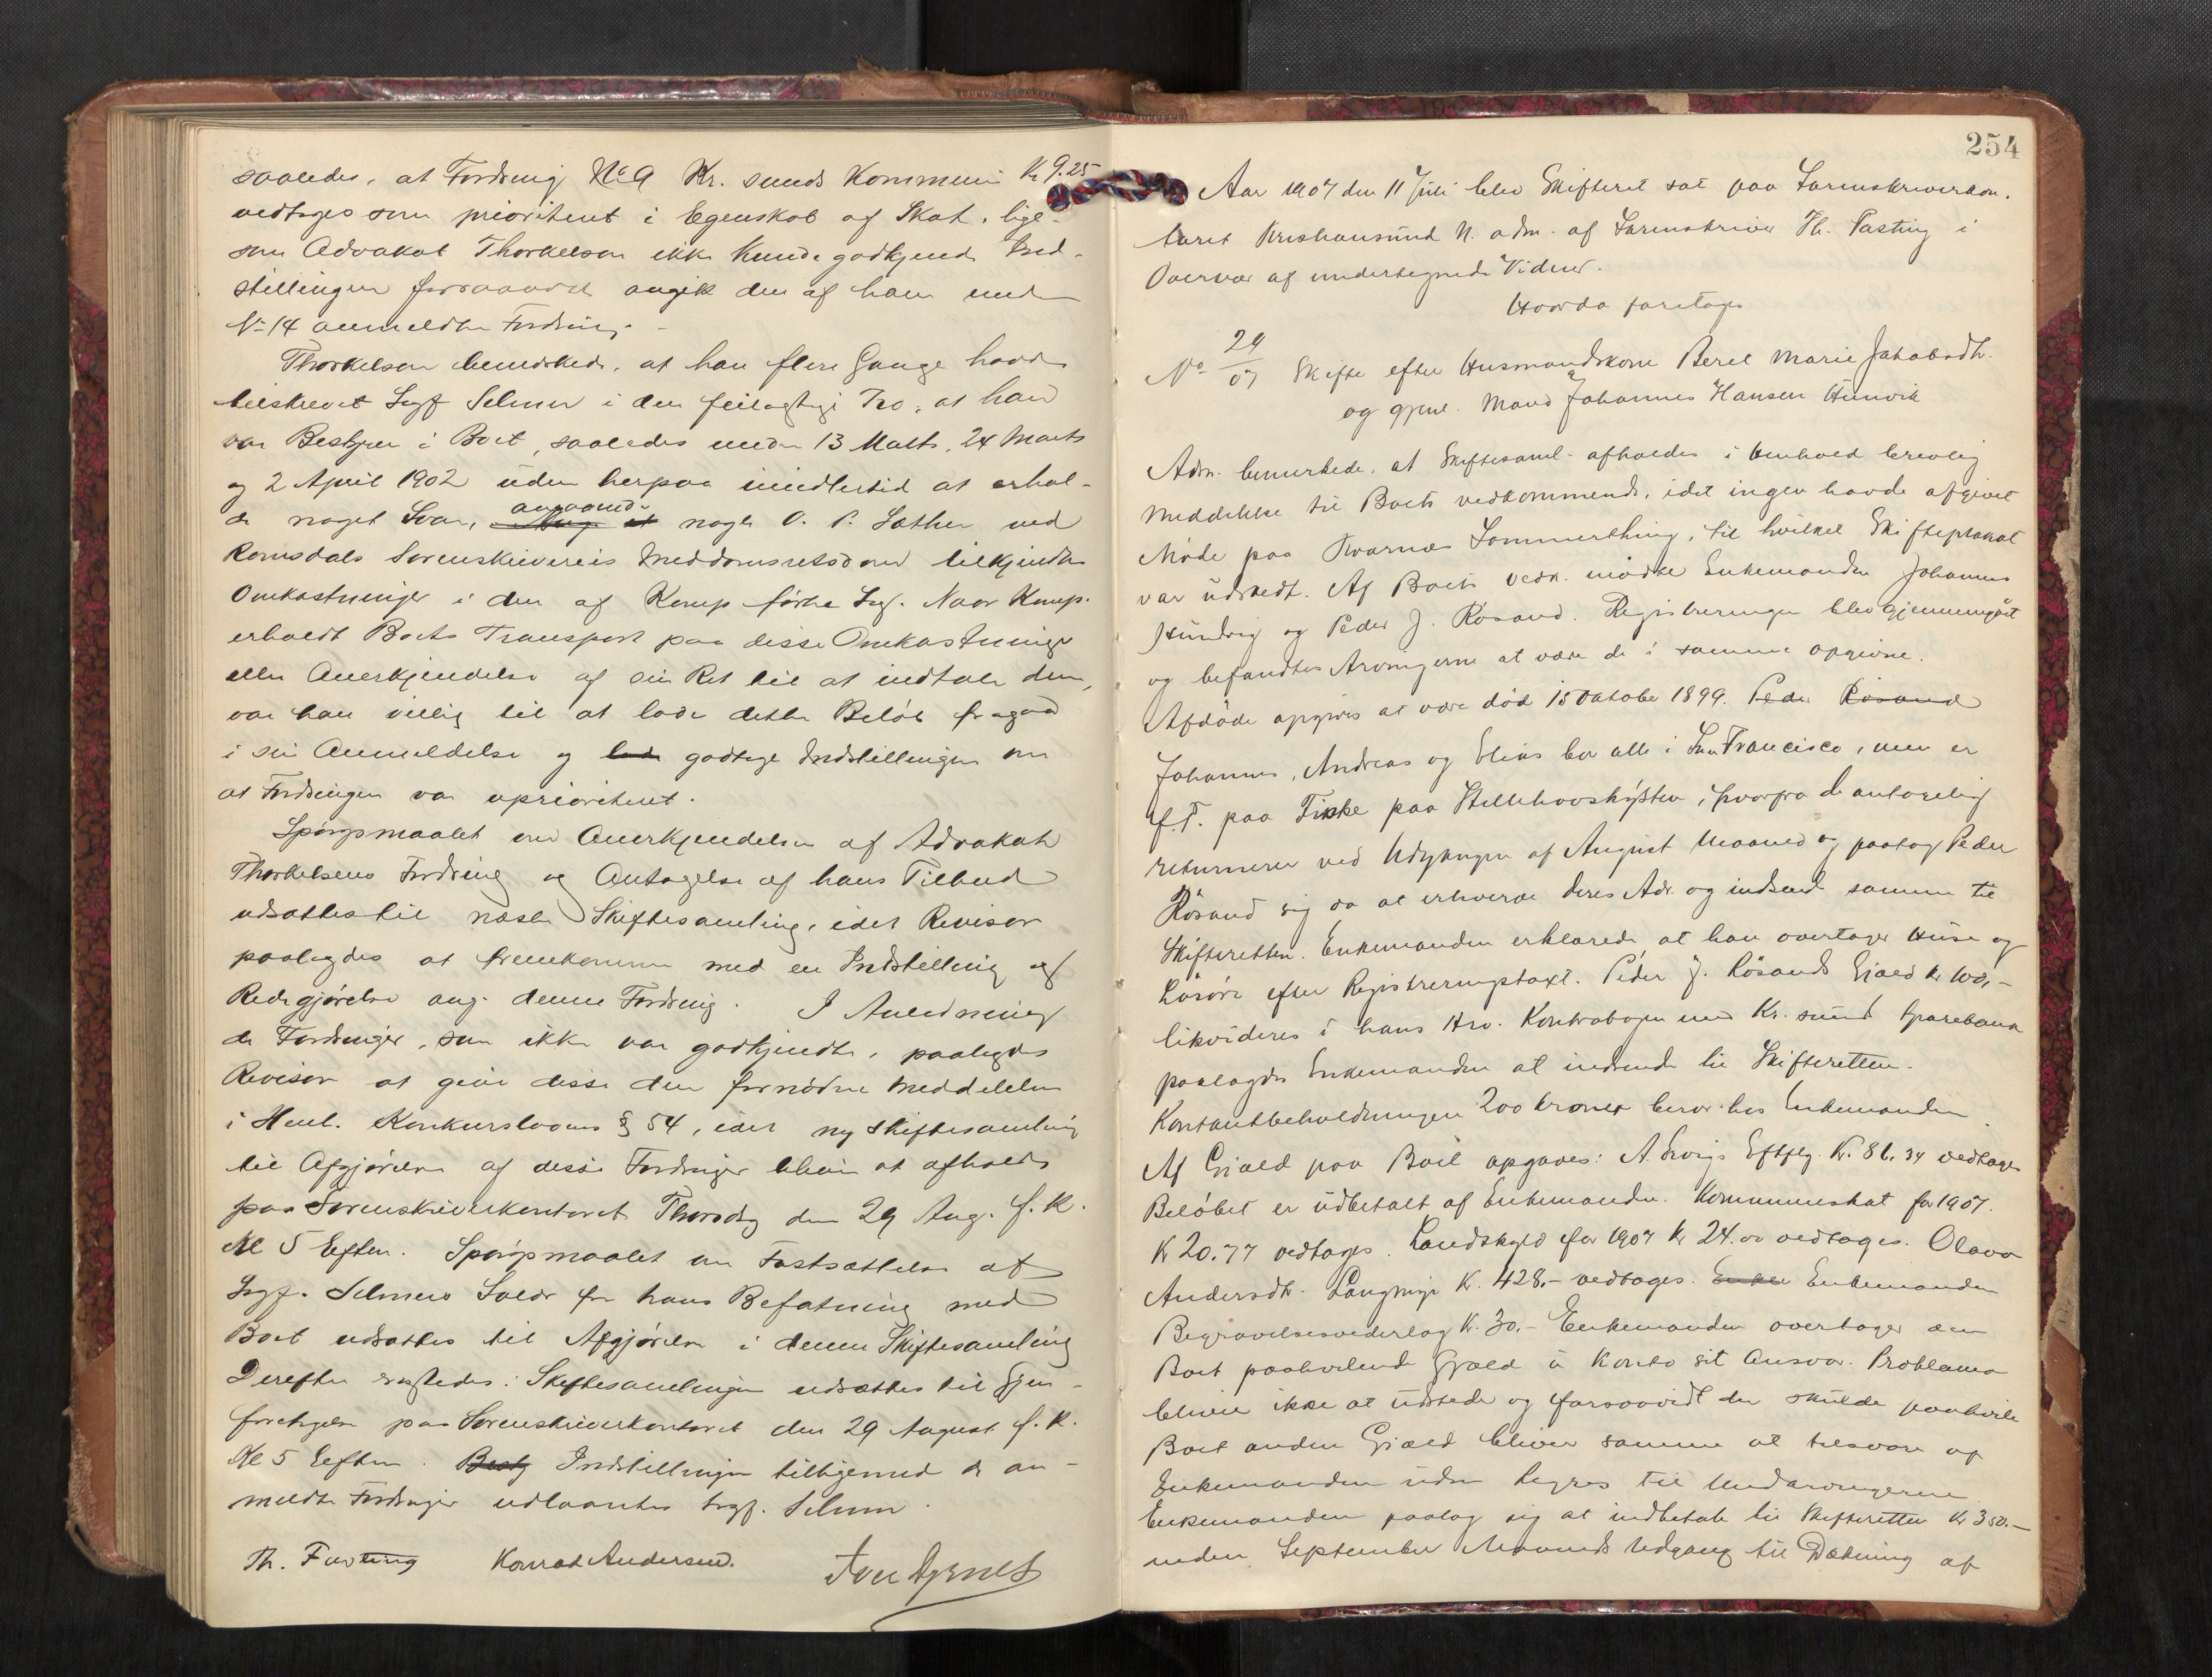 saaledes, at Fordring No 9 Kr. sunds Kommune Kr 9.25
vedtages som prioriteret i Egenskab af Skat, lige-
som Advokat Thorkelson ikke kunde godkjende Ind-
stillingen forsaavidt angik den af ham under
No 14 anmeldte Fordring. -
Thorkelson bemærkede, at han flere Gange havde
tilskrevet Sagf Selmer i den feilagtige Tro, at han
var Bestyrer i Boet, saaledes under 13 Marts, 24 Marts
og 2 April 1902 uden herpaa imidlertid at erhol-
de noget Svar, angaaende nogle O. P. Sæther ved
Romsdals Sorenskriveries Meddomsretsdom tilkjendte
Omkostninger i den af Kamp førte Sag. Naar Kamp
erholdt Boets Transport paa disse Omkostninger
eller Anerkjendelse af sin Ret til at indtale dem,
var han villig til at lade dette Beløb fragaa
i sin Anmeldelse og lade godtage Indstillingen om
at Fordringen var uprioriteret.
Spørgsmaalet om Anerkjendelsen af Advokat
Thorkelsens Fordring og Antagelse af hans Tilbud
udsattes til næste Skiftesamling, idet Revisor
paalagdes at fremkomme med en Indstilling og
Redegjørelse ang. denne Fordring. I Anledning
de Fordringer, som ikke var godkjendte, paalagdes
Revisor at give disse den fornødne Meddelelse
i Henh. Konkurslovens § 54, idet ny Skiftesamling
til Afgjørelse af disse Fordringer bliver at afholde
paa Sorenskriverkontoret Thorsdag den 29 Aug. f. K.
Kl 5 Eftm. Spørgsmaalet om Fastsættelse af
Sagf. Selmers Salær for hans Befatning med
Boet udsattes til Afgjørelse i denne Skiftesamling
Derefter sluttedes: Skiftesamlingen udsættes til Gjen-
foretagelse paa Sorenskriverkontoret den 29 August f. K.
Kl 5 Eftm. Besty Indstillingen tilligemed de an-
meldte Fordringer udlaantes Sagf. Selmer.
Th. Fasting Konrad Andersen.
254
Aar 1907 den 11 Juli blev Skifteret sat paa Sorenskriverkon-
toret Kristiansund N. adm. af Sorenskriver Th. Fasting i
Overvær af undertegnede Vidner.
Hvorda foretoges
No 29/07 Skifte efter Husmandskone Beret Marie Jakobsdtr.
og gjenl. Mand Johannes Hansen Hunvik
Adm. bemærkede, at Skiftesaml. afholdes i Henhold brevlig
Meddelelse til Boets vedkommende, idet ingen havde afgivet
Møde paa Kvernes Sommerthing, til hvilket Skifteplakat
var udstedt. Af Boets vedk. mødte Enkemanden Johannes
Hundvig og Peder J. Røsand. Registreringen blev gjennemgaaet
og befandtes Arvingerne at være de i samme opgivne.
Afdøde opgives at være død 15 Oktober 1899. Peder Røsand
Johannes, Andreas og Elias bor alle i San Francisco, men er
f. T. paa Fiske paa Stillehavskysten, hvorfra de antagelig
returnerer ved Udgangen af August Maaned og paatog Peder
Røsand sig da at erhverve deres Adr. og indsende samme til
Skifteretten. Enkemanden erklærede at han overtager Huse og
Løsøre efter Registreringstaxt. Peder J. Røsands Gjæld kr 100,-
likvideres i hans Arv. Kontrabogen med Kr. sund Sparebank
paalagdes Enkemanden at indsende til Skifteretten.
Kontantbeholdningen 200 kroner beror hos Enkemanden
Af Gjæld paa Boet opgaves: Eftflg. Kr. 86.34 vedtages
Beløbet er udbetalt af Enkemanden. Kommuneskat for 1907.
Kr 20.77 vedtages. Landskyld for 1907 Kr 24.00 vedtages. Olava
Andersdtr. Langnyje Kr. 428.- vedtages. Enke Enkemanden
Begravelsesvederlag Kr. 30.- Enkemanden overtager den
Boet paahvilende Gjæld á Konto sit Ansvar. Proklama
bliver ikke at udstede og forsaavidt der skulde paahvile
Boet anden Gjæld bliver samme at tilsvare af
Enkemanden uden Regres til Medarvingerne
Enkemanden paatog sig at indbetale til Skifteretten Kr 350.-
inden September Maaneds Udgang til Dækning af